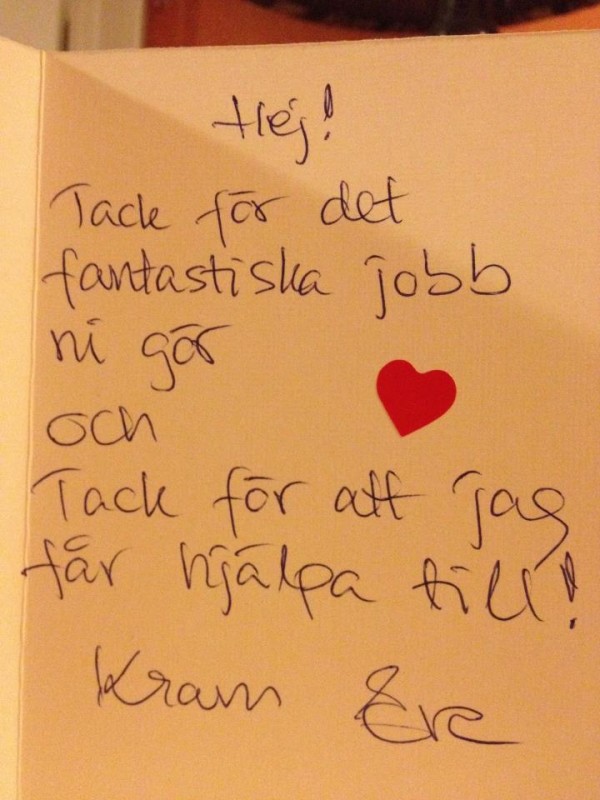 Hej!
Tack för det
fantastiska jobb
ni gör
och
Tack för att jag
får hjälpa till!
Kram